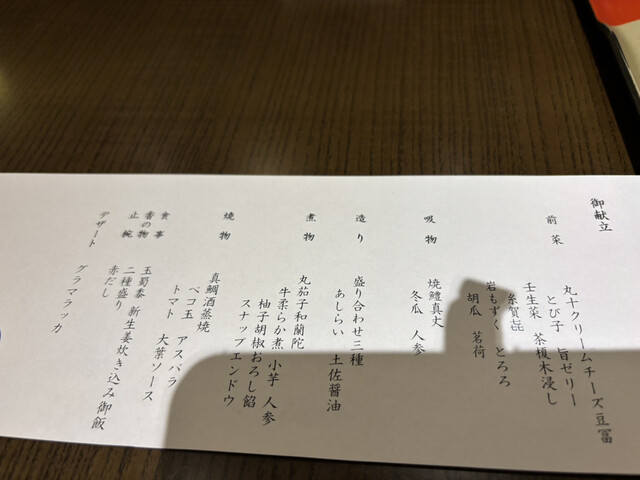 御献立
前菜
丸十クリームチーズ豆冨
とび子 旨ゼリー
壬生菜 茶榎木浸し
糸賀㐂
岩もずく とろろ
胡瓜 茗荷
吸物
焼鱧真丈
冬瓜 人参
造り
盛り合わせ三種
あしらい 土佐醤油
煮物
丸茄子和蘭陀
牛柔らか煮 小芋 人参
柚子胡椒おろし餡
スナップエンドウ
焼物
真鯛酒蒸焼
ペコ玉 アスパラ
トマト 大葉ソース
食事
玉蜀黍 新生姜炊き込み御飯
香の物
二種盛り
止椀
赤だし
デザート
グラマラッカ